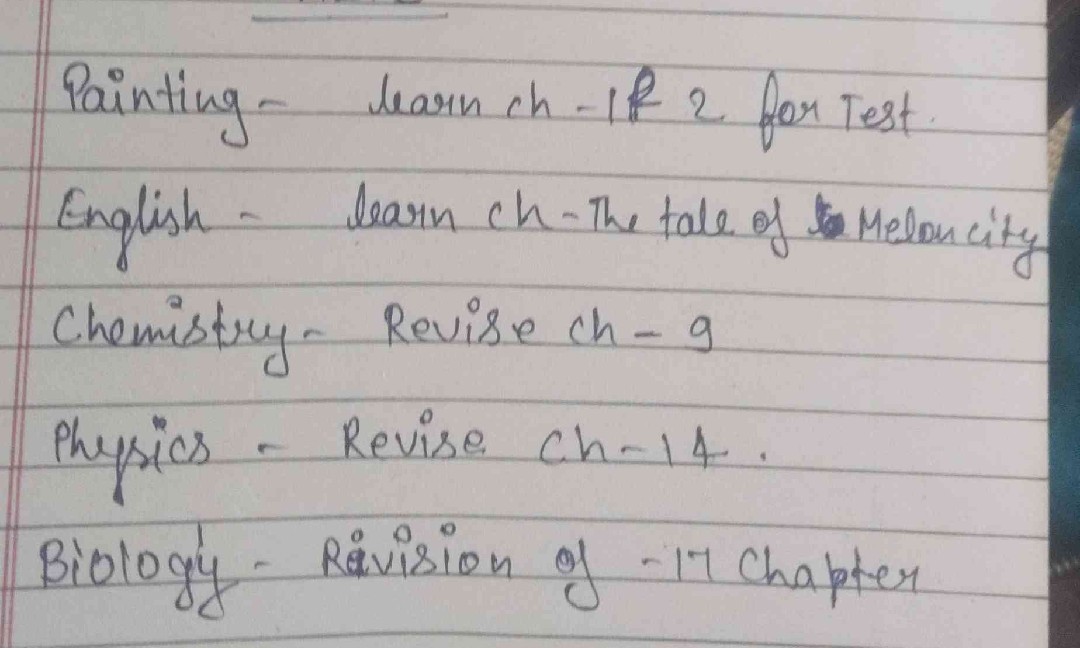 Painting - learn ch - 1 & 2 for Test.
English - learn ch - The tale of Melon city
Chemistry - Revise ch - 9
Physics - Revise ch - 14.
Biology - Rivision of - 17 Chapter